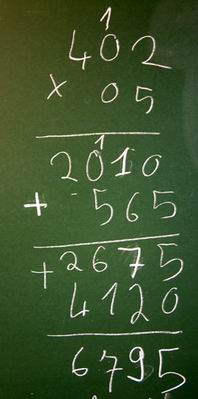 1
402
× 05
1
2010
+ 565
+ 2675
4120
6795